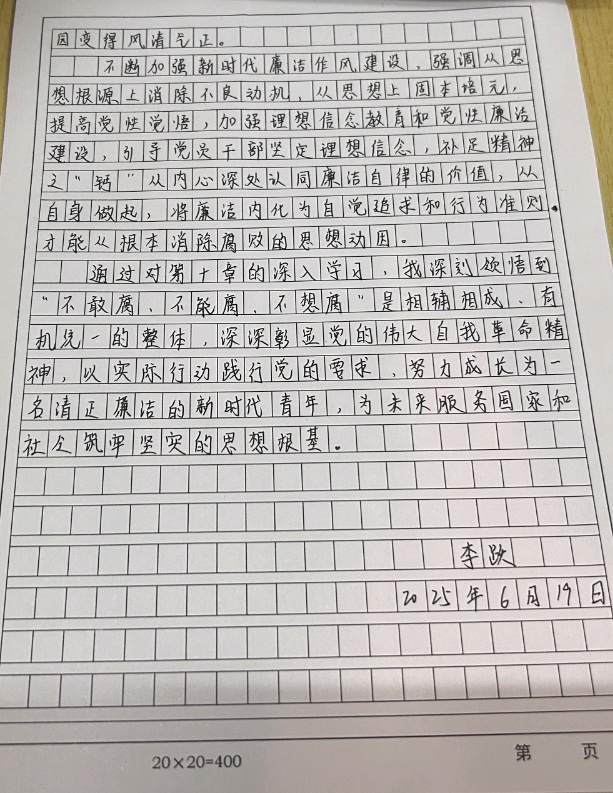 因变得风清气正。
不断加强新时代廉洁作风建设，强调从思
想根源上消除不良动机，从思想上固本培元，
提高党性觉悟，加强理想信念教育和党性廉洁
建设，引导党员干部坚定理想信念，补足精神
之“钙”从内心深处认同廉洁自律的价值，从
自身做起，将廉洁内化为自觉追求和行为准则，
才能从根本消除腐败的思想动因。
通过对第十章的深入学习，我深刻领悟到
“不敢腐、不能腐、不想腐”是相辅相成、有
机统一的整体，深深彰显党的伟大自我革命精
神，以实际行动践行党的要求，努力成长为一
名清正廉洁的新时代青年，为未来服务国家和
社会筑牢坚实的思想根基。
李跃
2025年6月19日
20×20=400
第 页